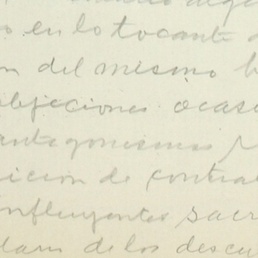 o en lo tocante
del mismo
objeciones ocas
antagonismos
ición de contra
influyentes sacr
dam de los descu